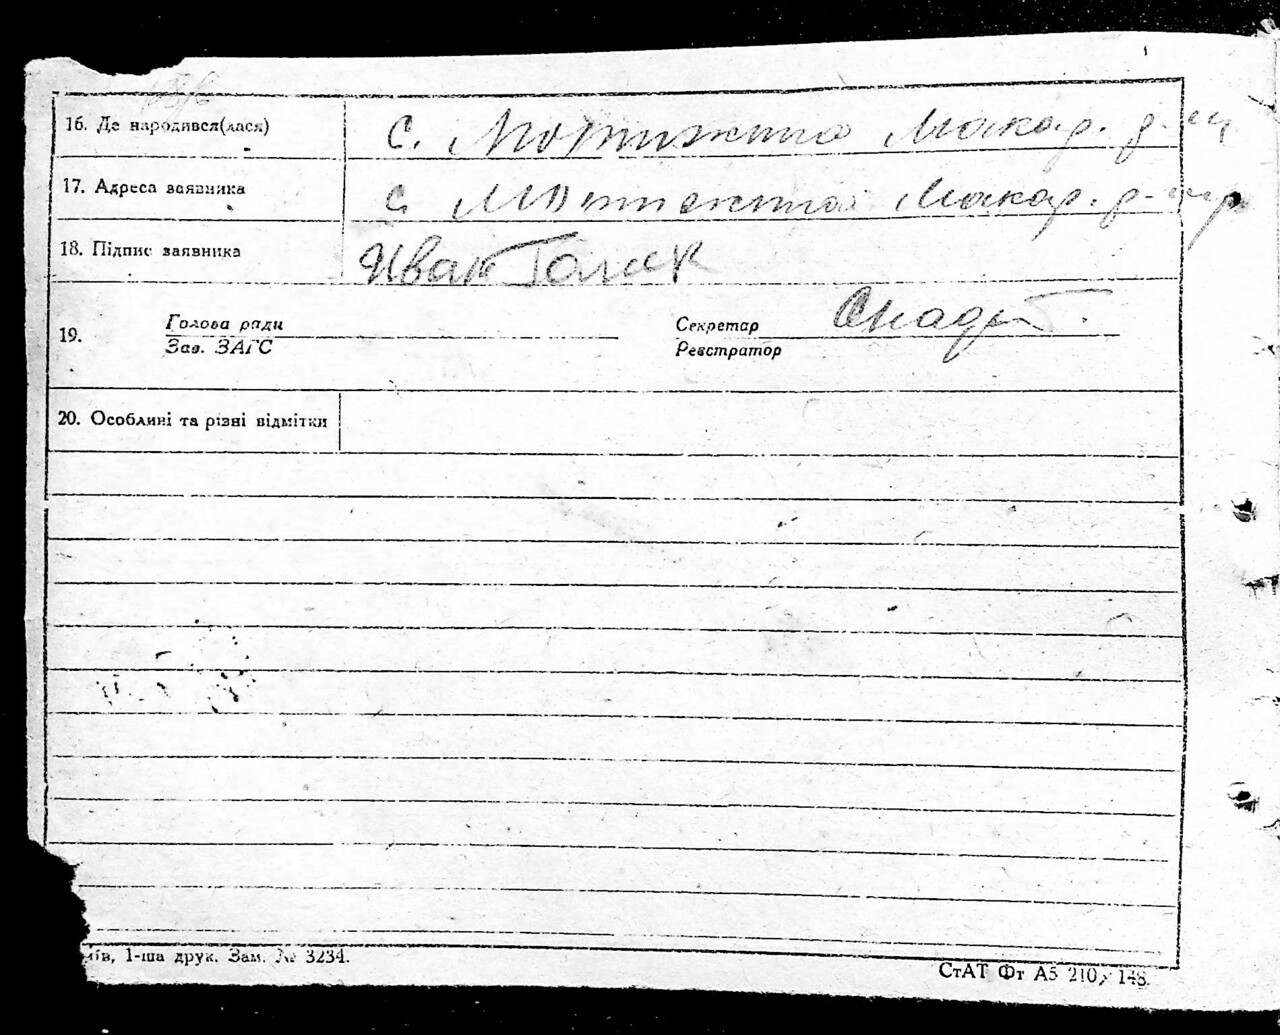 16. Де народився(лася) с. Мотижина Макар. р-н
17. Адреса заявника с. Мотижина Макар. р-н
18. Підпис заявника Иван Голик
19. Голова ради Секретар
Зав. ЗАГС Реєстратор
20. Особливі та різні відмітки
їв, 1-ша друк. Зам. № 3234.
СтАТ Фт А5 210 × 148.